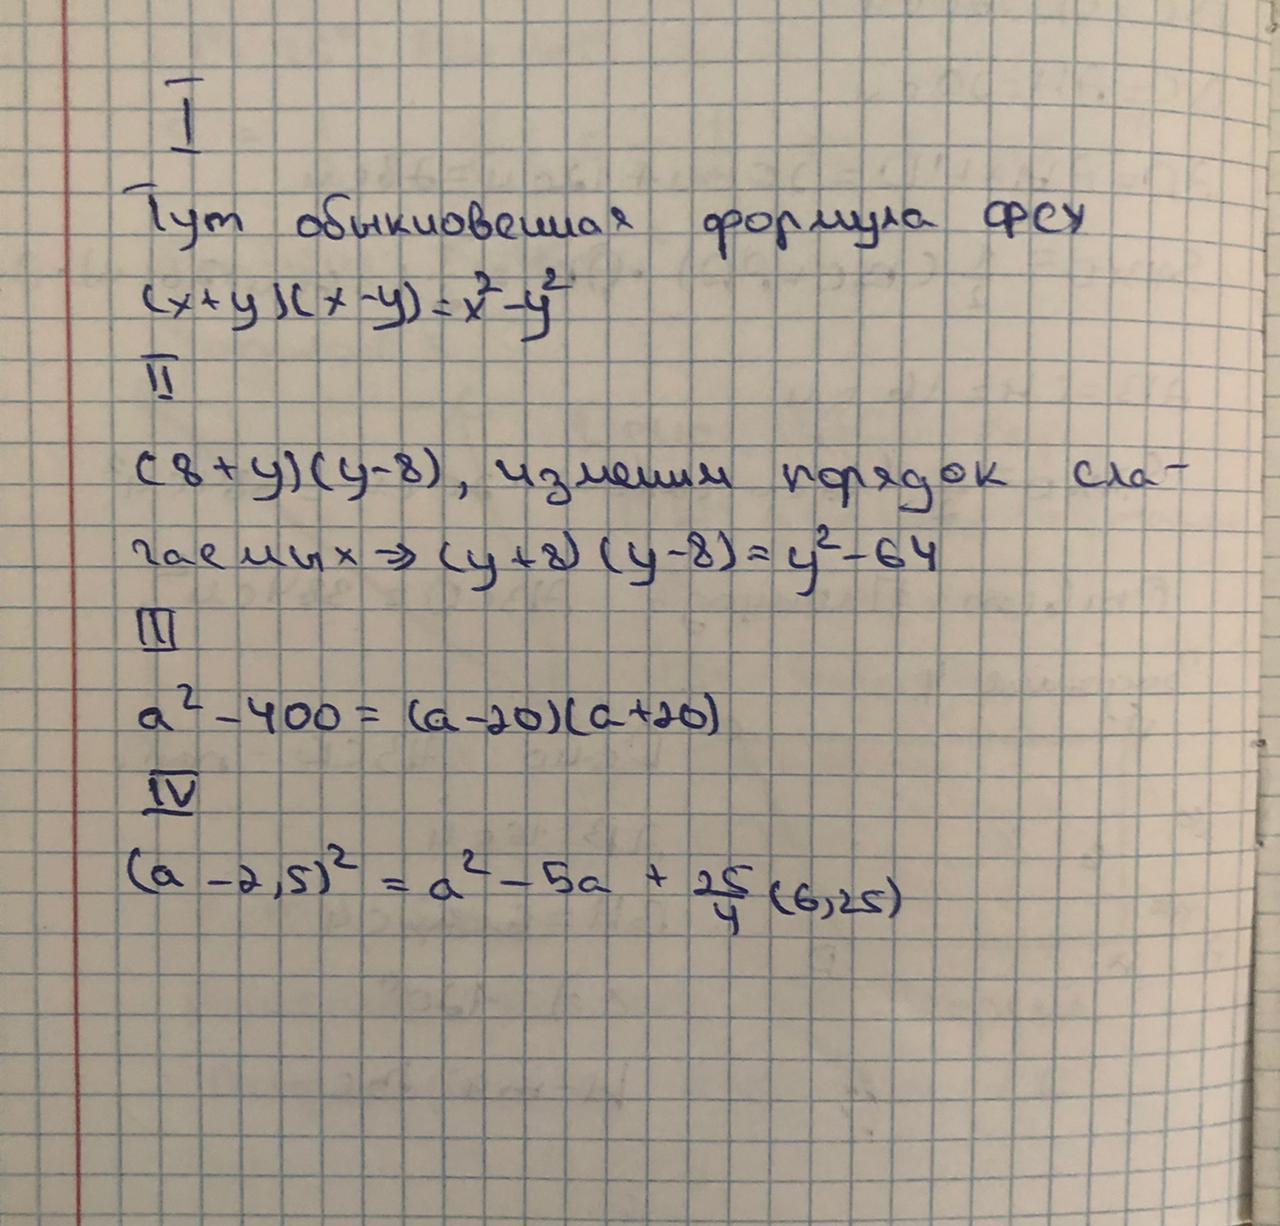 I
Тут обыкновенная формула фсу
(x+y)(x-y)=x²-y²
II
(8+y)(y-8), изменим порядок сла-
гаемых ⇒ (y+8)(y-8)=y²-64
III
a²-400=(a-20)(a+20)
IV
(a-2,5)²=a²-5a+25/4(6,25)